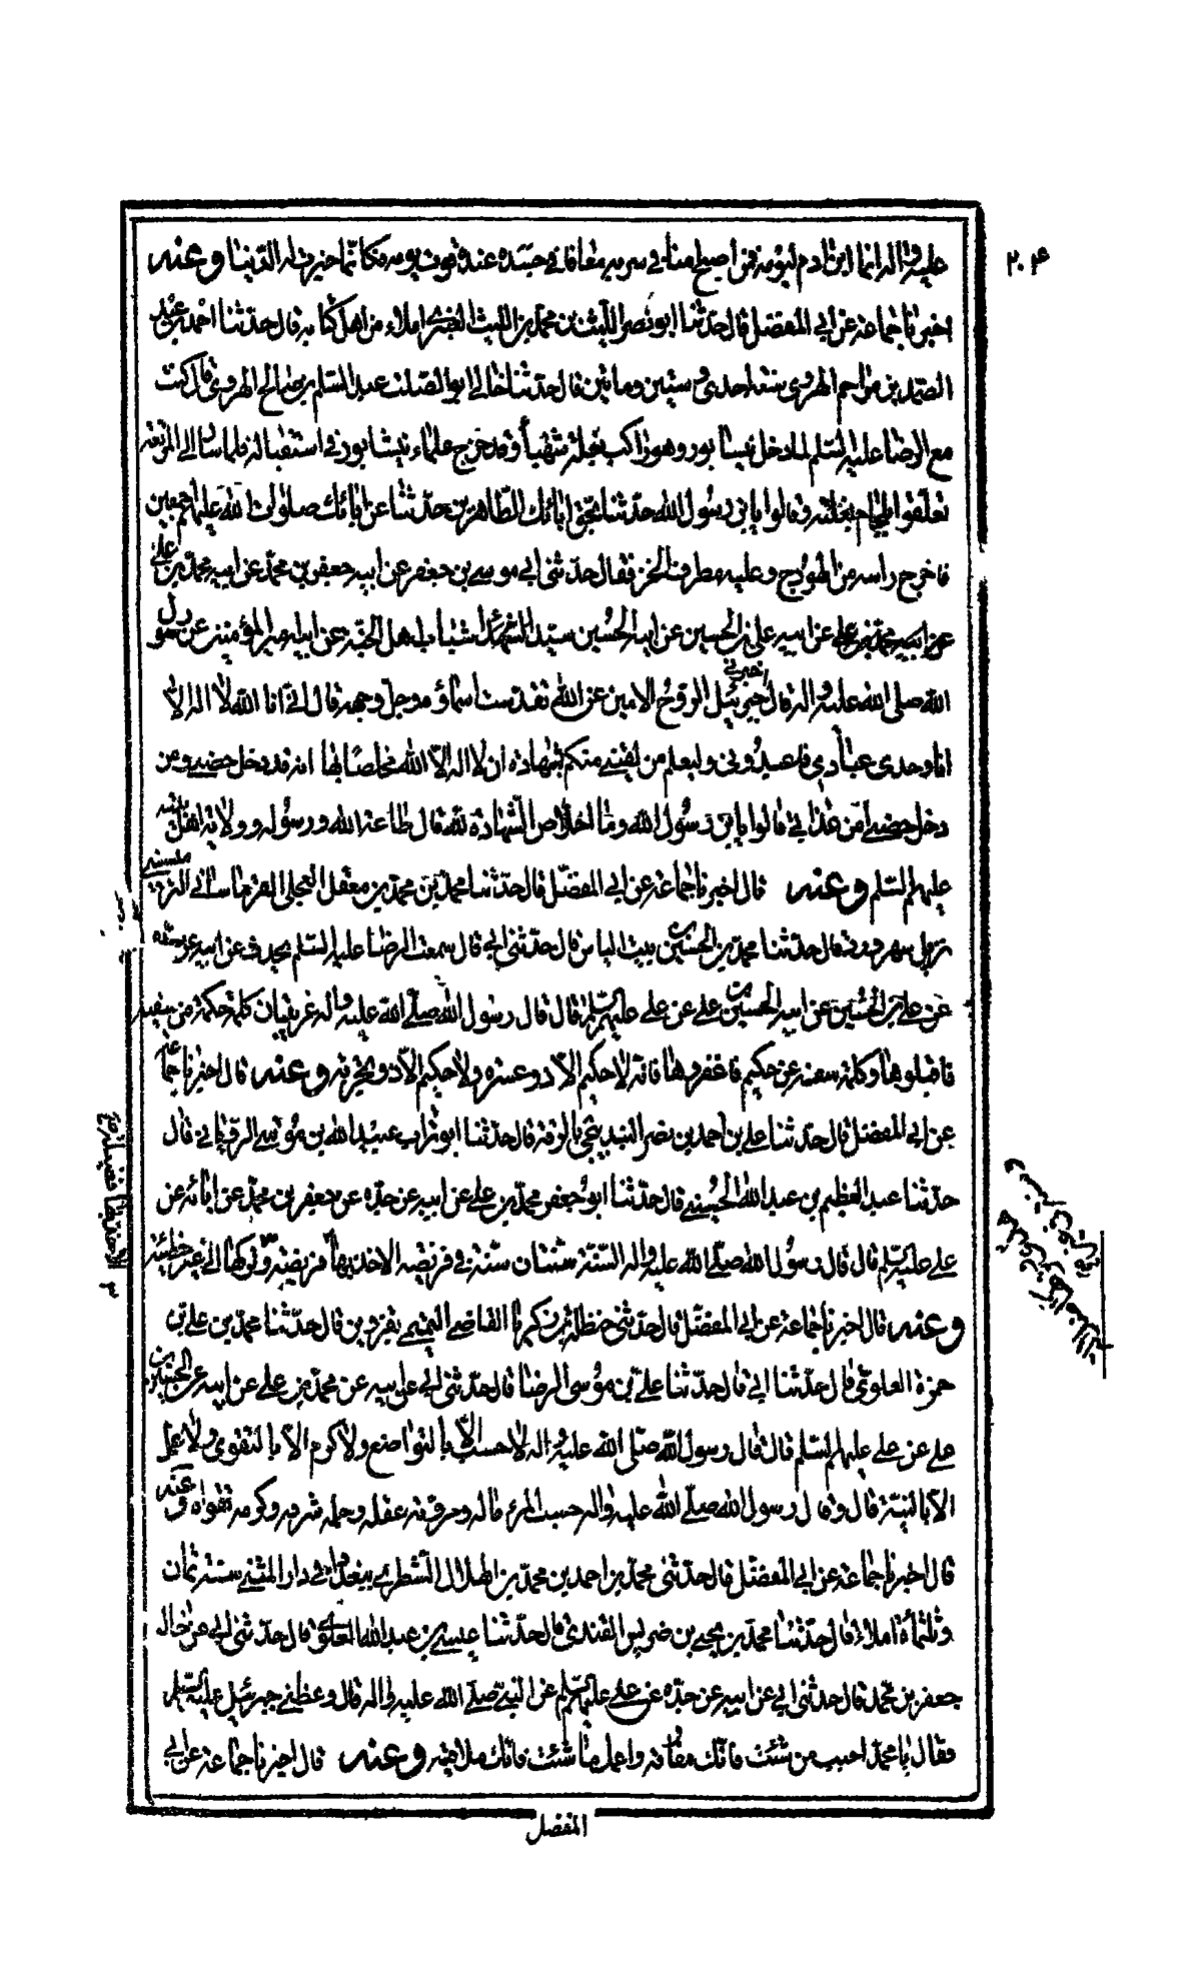 ٢٠۴
عليه واله انما ابن ادم ليومه فمن اصبح امنا في سربه معافا في جسده عنده قوت يومه فكانما حيزت له الدنيا وعنه
اخبرنا جماعة عن ابي المفضل قال حدثنا ابو نصر الليث بن محمد بن الليث العنبري املاء من اصل كتابه قال حدثنا احمد بن عبد
الصمد بن مزاحم الهروي سنة احدى وستين ومائتين قال حدثنا خالي ابو الصلت عبد السلم بن صالح الهروي قال كنت
مع الرضا عليه السلم لما دخل نيسابور وهو راكب بغلة شهباء وقد خرج علماء نيشابور في استقباله فلما سار الى المربعة
تعلقوا بلجام بغلته وقالوا يا بن رسول الله حدثنا بحق ابائك الطاهرين حدثنا عن ابائك صلوات الله عليهم اجمعين
فاخرج راسه من الهودج وعليه مطرف خز فقال حدثني ابي موسى بن جعفر عن ابيه جعفر بن محمد عن ابيه محمد بن علي
عن ابيه علي بن الحسين عن ابيه الحسين سيد شباب اهل الجنة عن ابيه امير المؤمنين عن رسول
الله صلى الله عليه واله قال اخبرني جبرئيل الروح الامين عن الله تقدست اسماؤه وجل وجهه قال اني انا الله لا اله الا
انا وحدي عبادي فاعبدوني وليعلم من لقيني منكم بشهادة ان لا اله الا الله مخلصا بها انه قد دخل حصني ومن
دخل حصني امن عذابي قالوا يا بن رسول الله وما اخلاص الشهادة لله قال طاعة الله ورسوله وولاية اهل بيته
عليهم السلم وعنه قال اخبرنا جماعة عن ابي المفضل قال حدثنا محمد بن محمد بن معقل العجلي القرميسيني
بسهرورد قال حدثنا محمد بن الحسين بن بنت الياس قال حدثني ابي قال سمعت الرضا عليه السلم يحدث عن ابيه عن جده
عن علي بن الحسين عن ابيه الحسين بن علي عن علي عليهم السلم قال قال رسول الله صلى الله عليه واله غريبتان كلمة حكمة من سفيه
فاقبلوها وكلمة سفه من حكيم فاغفروها فانه لا حكيم الا ذو عثرة ولا حكيم الا ذو تجربة وعنه قال اخبرنا جماعة
عن ابي المفضل قال حدثنا علي بن احمد بن نصر البندنيجي بالرقة قال حدثنا ابو تراب عبيد الله بن موسى الروياني قال
حدثنا عبد العظيم بن عبد الله الحسني قال حدثنا ابو جعفر محمد بن علي عن ابيه عن جده عن جعفر بن محمد عن ابائه عن
علي عليه السلم قال قال رسول الله صلى الله عليه واله السنة سنتان سنة في فريضة الاخذ بها فريضة وتركها الى غير خطيئة
وعنه قال اخبرنا جماعة عن ابي المفضل قال حدثني حنظلة بن زكريا القاضي التميمي بقزوين قال حدثنا محمد بن علي بن
حمزة العلوي قال حدثنا ابي قال حدثنا علي بن موسى الرضا قال حدثني ابي عن ابيه عن محمد بن علي عن ابيه عن الحسين بن
علي عن علي عليهم السلم قال قال رسول الله صلى الله عليه واله لا حسب الا بالتواضع ولا كرم الا بالتقوى ولا عمل
الا بالنية قال وقال رسول الله صلى الله عليه واله حسب المرء ماله ومروته عقله وحلمه شرفه وكرمه تقواه وعنه
قال اخبرنا جماعة عن ابي المفضل قال حدثني محمد بن احمد بن محمد بن الهلال الشطوي ببغداد في دار المثنى سنة ثمان
وثلثمأة املاء قال حدثنا محمد بن يحيى بن ضريس الفندي قال حدثنا عيسى بن عبد الله العلوي قال حدثني ابي عن خاله
جعفر بن محمد قال حدثني ابي عن ابيه عن جده عن علي عليهم السلم عن النبي صلى الله عليه واله قال وعظني جبرئيل عليه السلم
فقال يا محمد احبب من شئت فانك مفارقه واعمل ما شئت فانك ملاقيه وعنه قال اخبرنا جماعة عن ابي
المفضل